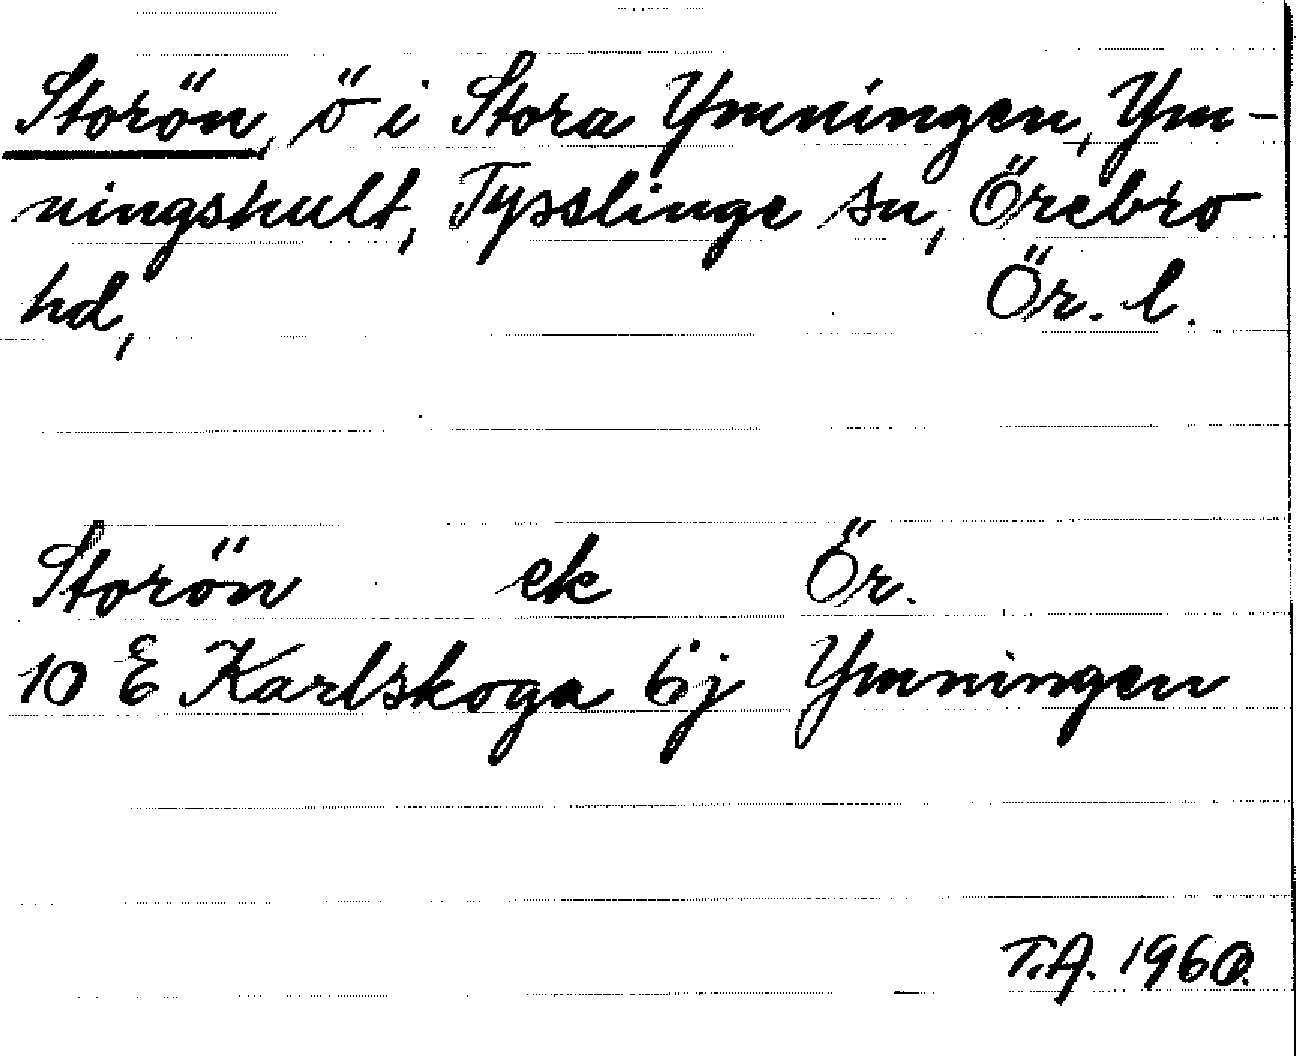 Storön, ö i Stora Ymningen, Ym-
ningshult, Tysslinge sn, Örebro
hd, Ör. l.
Storön ek Ör.
10 E Karlskoga 6j Ymningen
T.A. 1960.